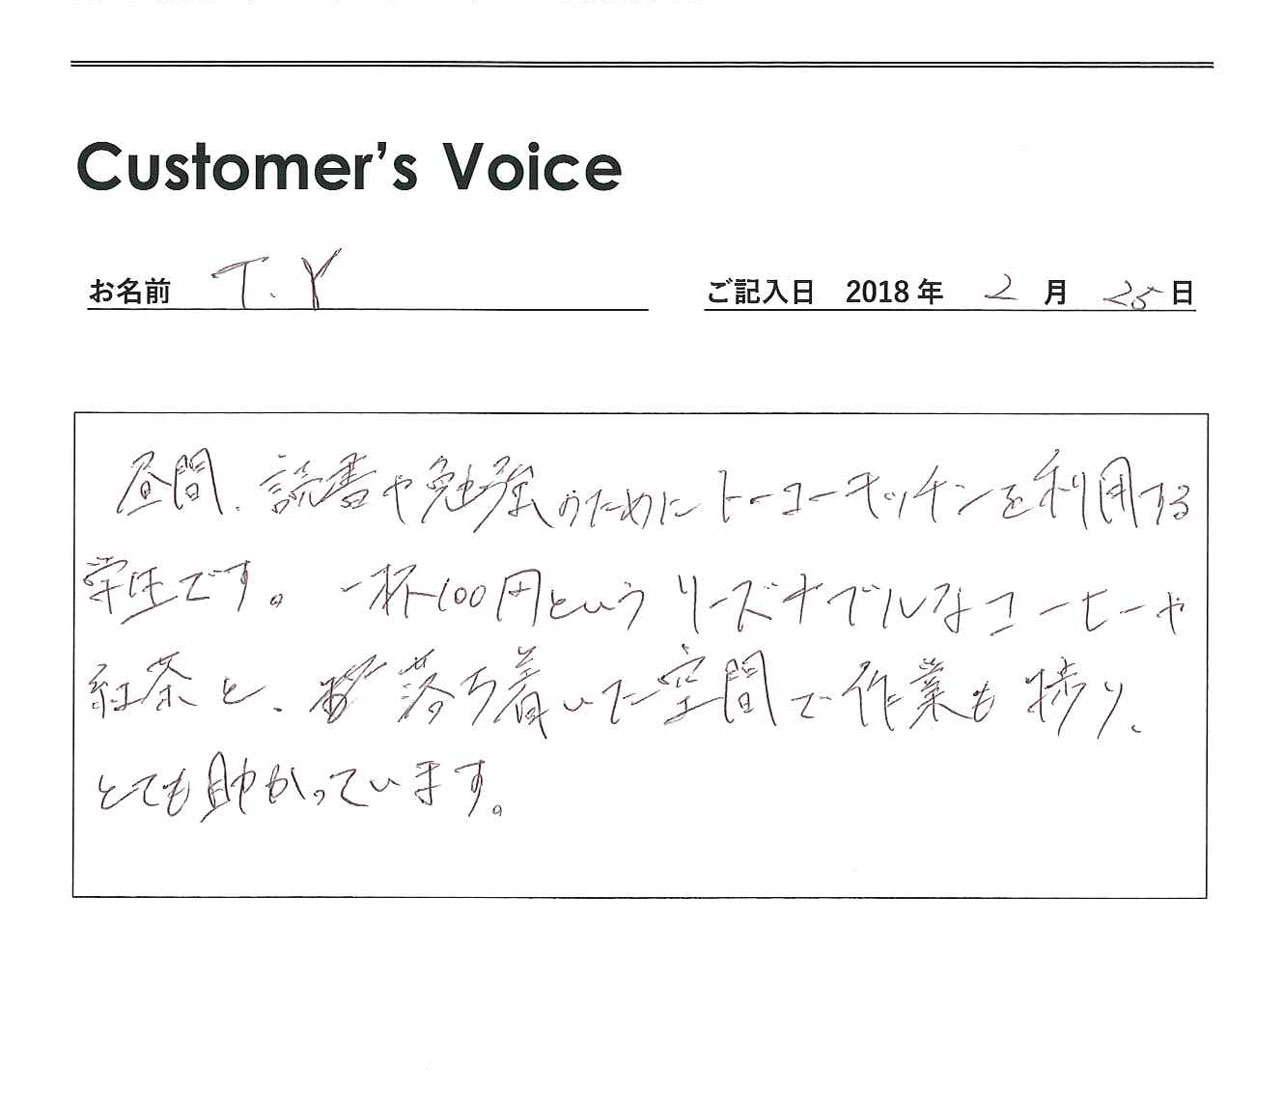 Customer's Voice
お名前 T.Y ご記入日 2018年 2月 25日
昼間、読書や勉強のためにトーコーキッチンを利用する
学生です。一杯100円というリーズナブルなコーヒーや
紅茶と、落ち着いた空間で作業も捗り、
とても助かっています。